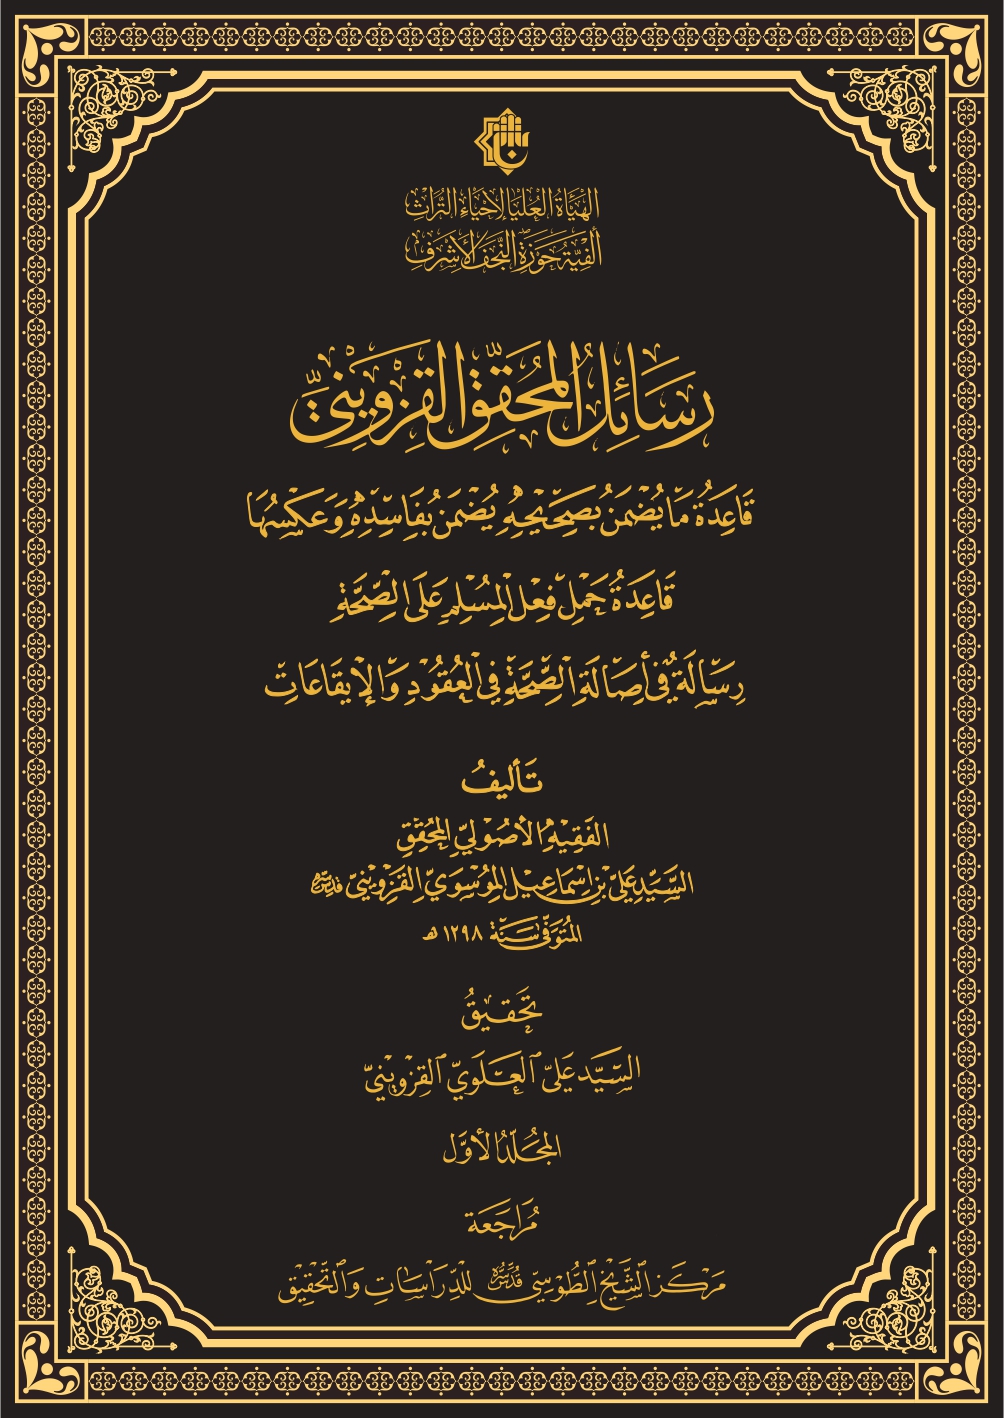 الهيأة العليا لإحياء التراث
ألفية حوزة النجف الأشرف
رَسَائِلُ المُحَقِّقِ القَزوِينيِّ
قَاعِدَةُ مَا يُضْمَنُ بِصَحِيْحِهِ يُضْمَنُ بِفَاسِدِهِ وَعَكْسُهَا
قَاعِدَةُ حَمْلِ فِعْلِ المُسْلِمِ عَلَى الصِّحَّةِ
رِسَالَةٌ في أَصَالَةِ الصِّحَّةِ في العُقُوْدِ وَالإيقَاعَاتِ
تَأليفُ
الفَقِيْهِ الأُصُوْليِّ المُحَقِّقِ
السَّيِّدِ عَليّ بْنِ إسْمَاعِيْل المُوْسَوِيِّ القَزْوِيْنيّ قدس سره
المُتَوَفَّى سَنَة ١٢٩٨ هـ
تَحْقيقُ
السَّيِّد عَليّ العَلَوِيّ القَزْوِينيّ
المُجَلَّدُ الأوَّل
مُرَاجَعَة
مَرْكَز الشَّيْخِ الطُّوْسِيّ قُدِّسَ سِرُّهُ لِلدِّرَاسَاتِ وَالتَّحْقِيْق